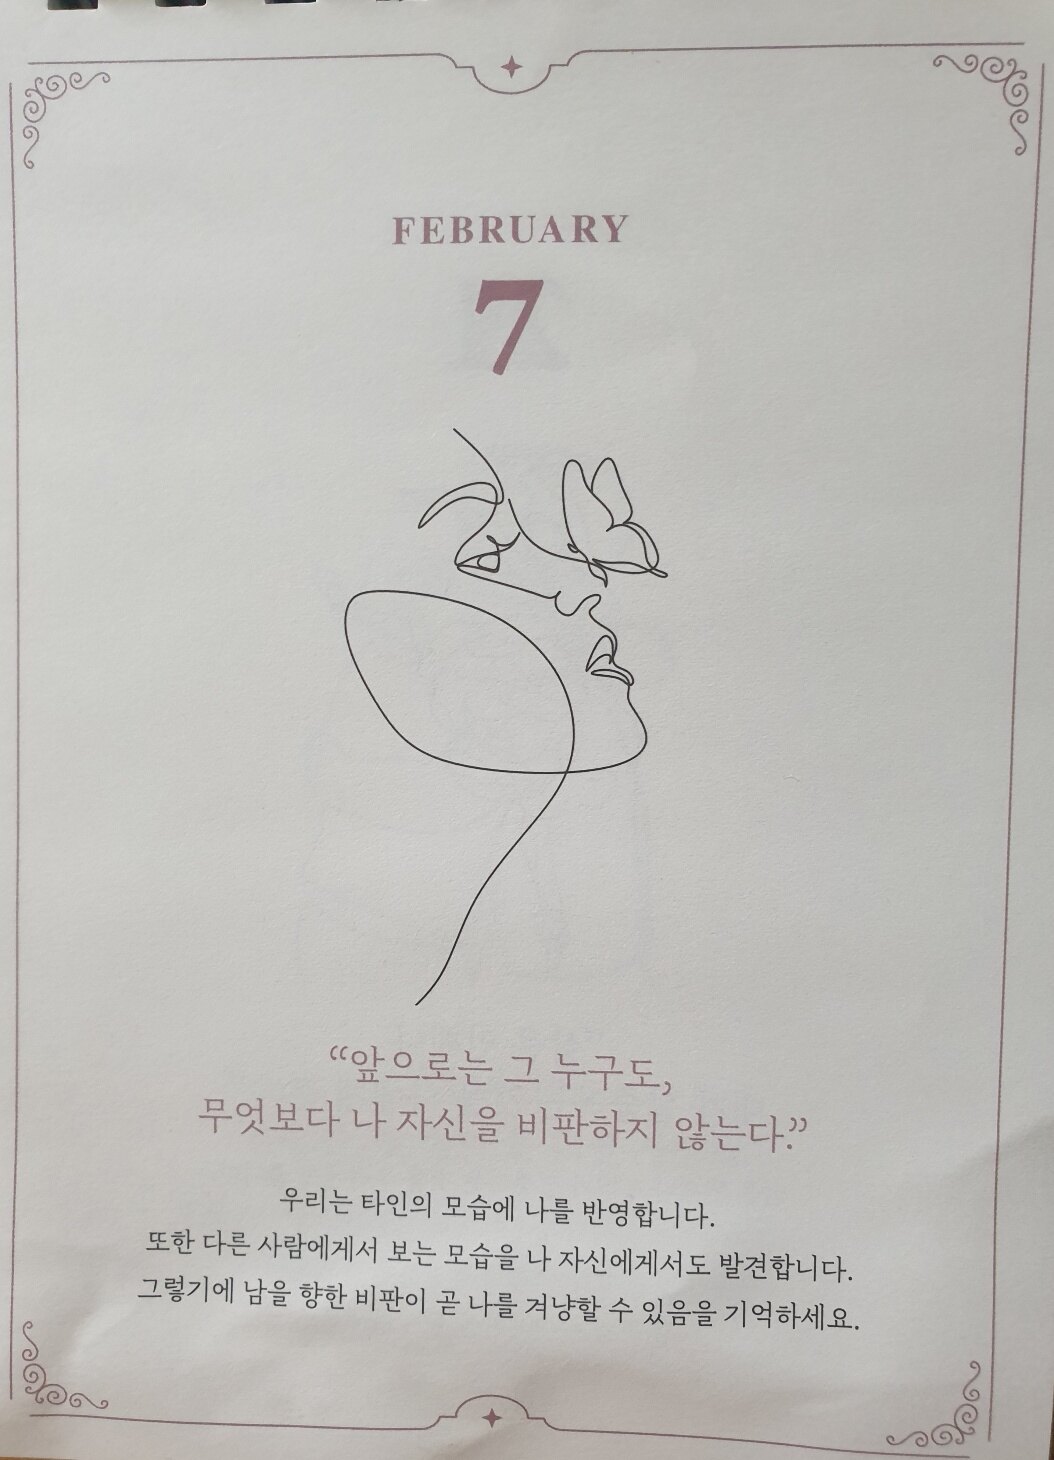 FEBRUARY
7
“앞으로는 그 누구도,
무엇보다 나 자신을 비판하지 않는다.”
우리는 타인의 모습에 나를 반영합니다.
또한 다른 사람에게서 보는 모습을 나 자신에게서도 발견합니다.
그렇기에 남을 향한 비판이 곧 나를 겨냥할 수 있음을 기억하세요.